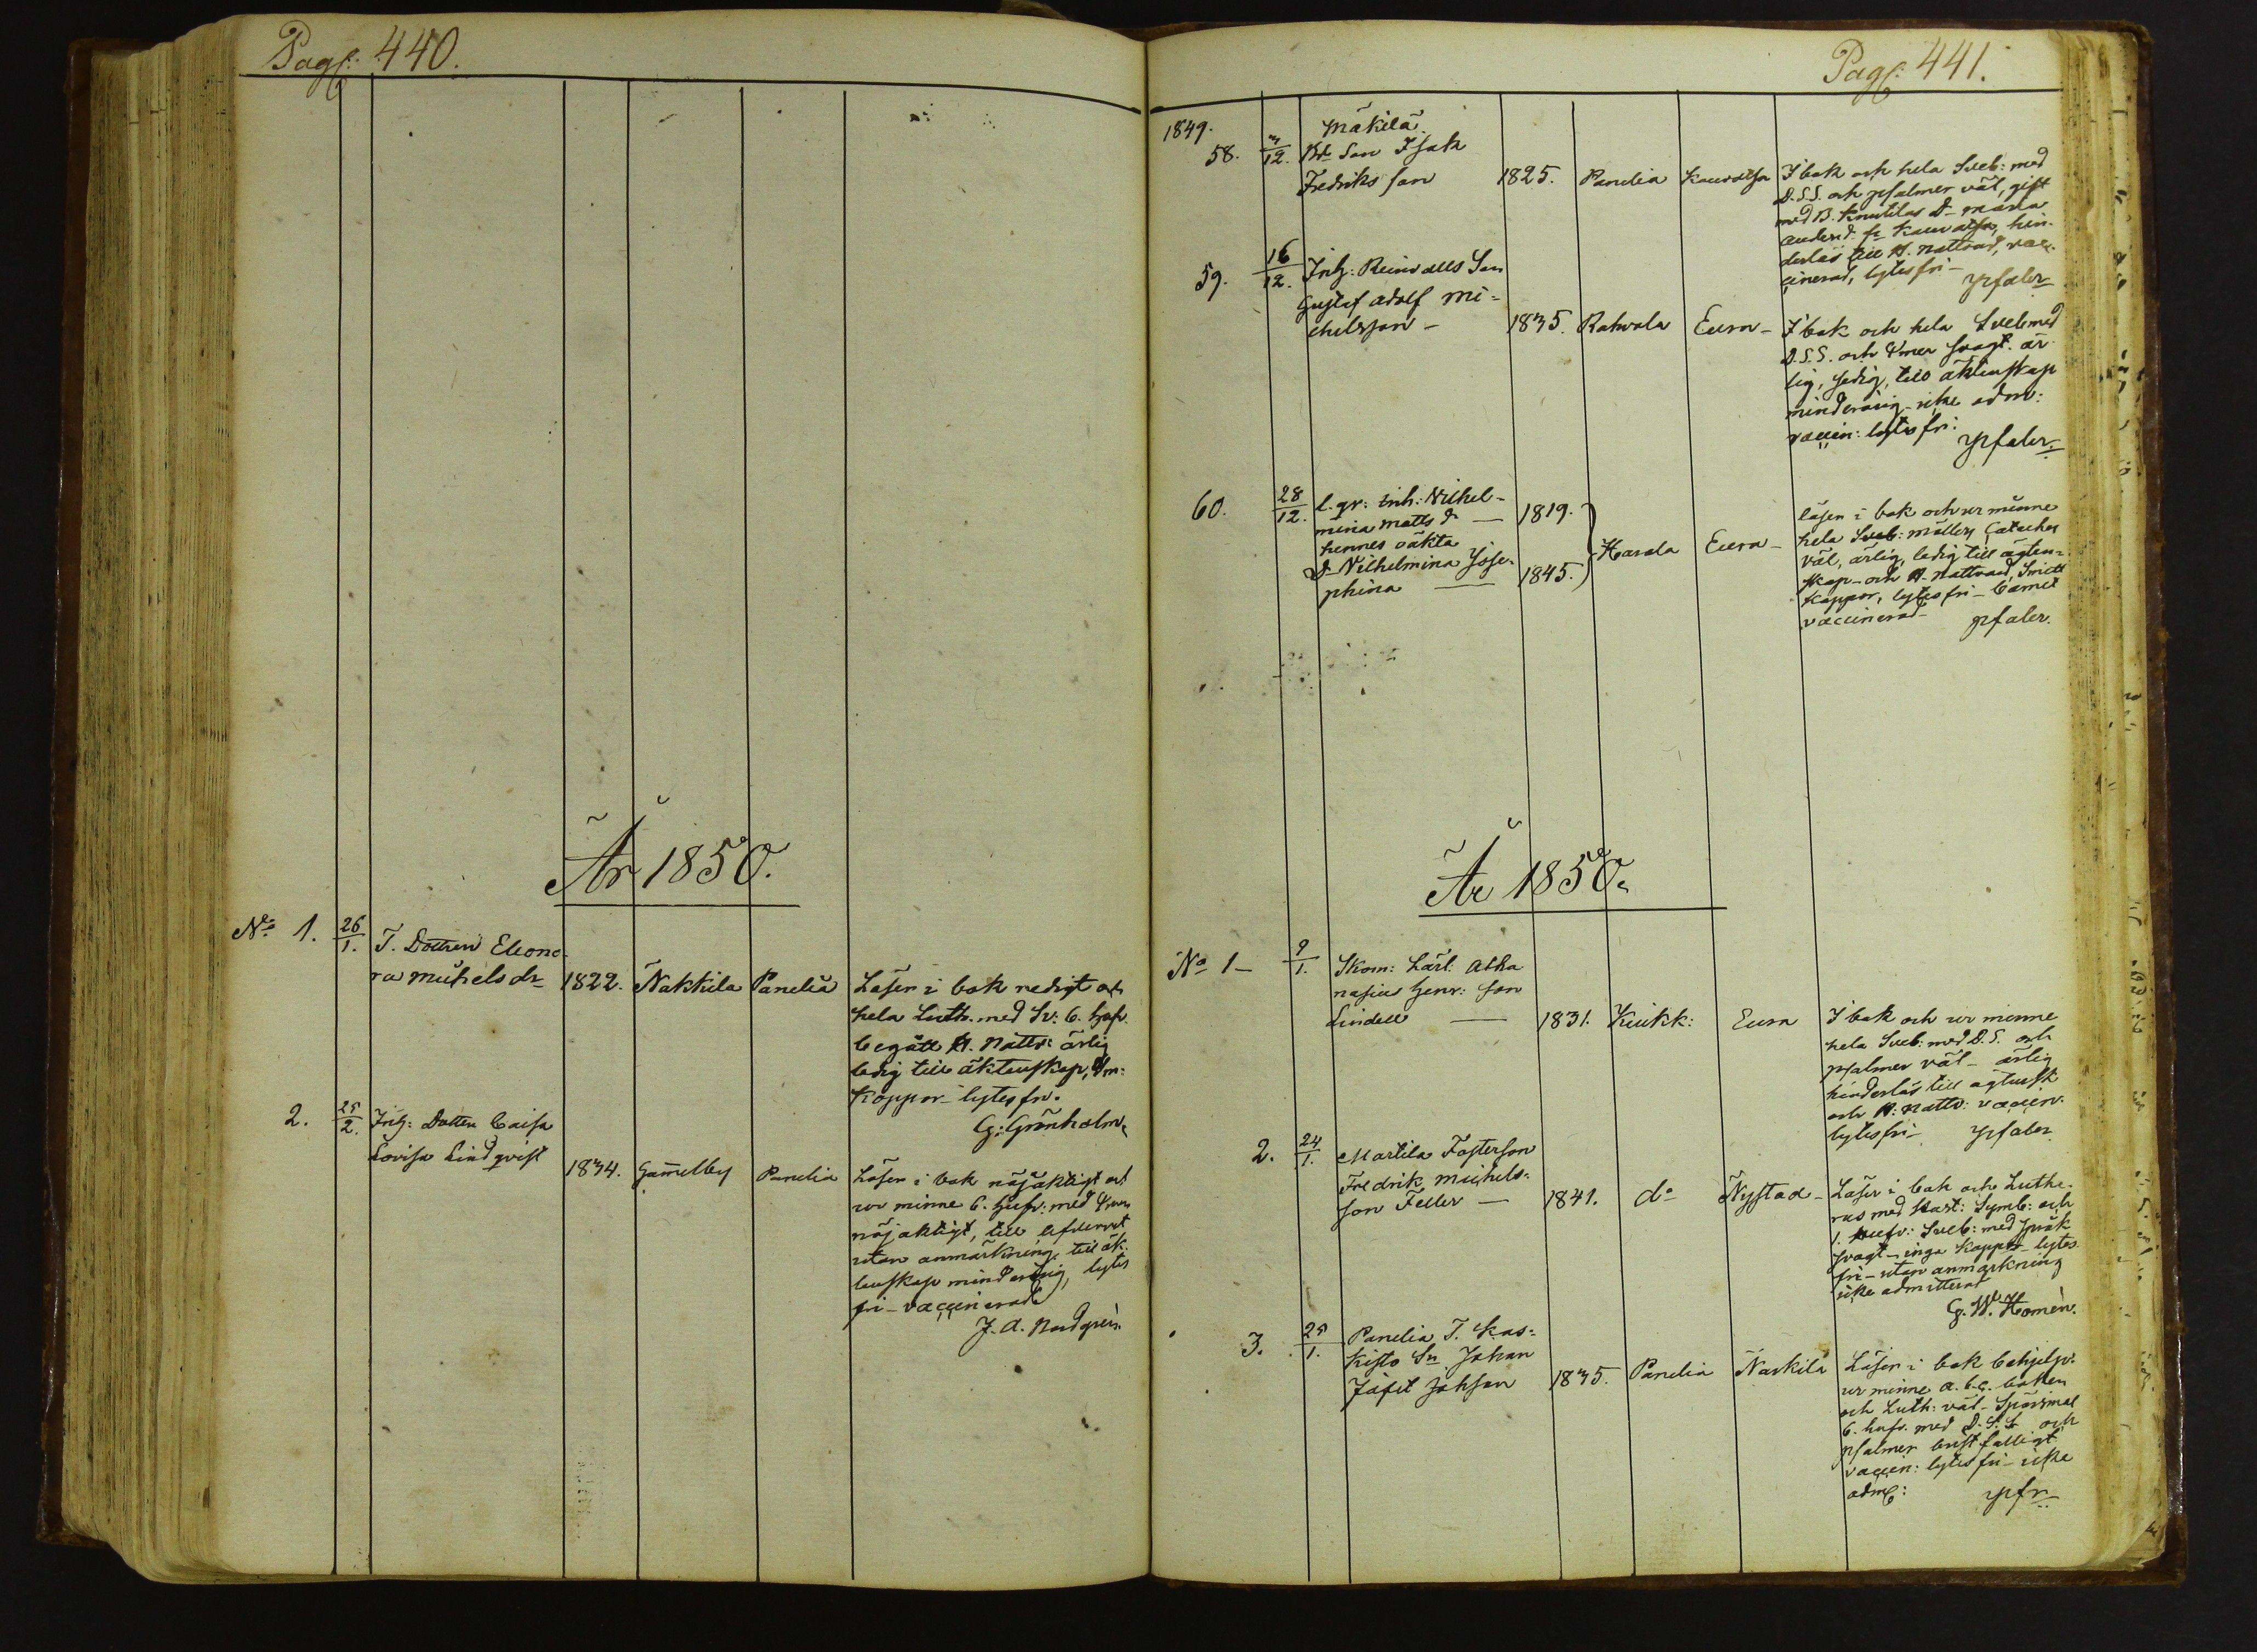 Pag: 440.
År 1850.
No 1. 26/1. T. Dottren Eleono-
ra Michelsdr 1822. Nakkila Panelia Läser i bok redigt och
hela Luth. med Sv: 6. Huf.
begått H. Nattv: ärlig
ledig till äktenskap,
Koppor - lytesfri.
G: Grönholm.
2. 25/2. Inh: Dotter Caisa
Lovisa Lindqvist 1834. Gammelby Panelia Läser i bok nöjaktigt och
ur minne 6. Hufv: med
nöjaktigt, till lefvernet
utan anmärkning, till äk-
tenskap minderårig, lytes
fri - vaccinerad
J. A. Nordgren.
Pag: 441.
1849. Mäkilä
58. 12. Bd Son Isak
Fredriks son 1825. Panelia Kauvatsa I bok och hela Sveb: med
D.S.S. och psalmer väl, gift
med B. Knutilas Dr Maria
fr Kauvatsa, hin-
derlös till H. Nattvard, vac-
cinerad, lytesfri -
Ypfaler
59. 16/12. Inh: Reinvalls Son
Gustaf Adolf Mi-
chelsson - 1835. Rahvola Eura - I bok och hela Sveb med
D.S.S. och svagt. är-
lig, ledig, till äktenskap
minderårig icke adm:
vaccin: lytesfri:
Ypfaler
60. 28/12. l. gr: inh: Vilhel-
mina Matts dr - 1819.
hennes oäkta
dr Vilhelmina Jose-
phina - 1845. Harola Eura - läser i bok och ur minne
hela Sveb: Möllers Cateches
väl, ärlig, ledig till ägten-
skap - och H. Nattvard,
koppor, lytesfri - barnet
vaccinerad - Ypfaler.
År 1850.
No 1 - 9/1. Skom: Lärl: Atha
nasius Henr: son
Lindell - 1831. Kiukk: Eura I bok och ur minne
hela Sveb: med D.S. och
psalmer väl - ärlig
hinderlös till ägtensk
och H. Nattv: vaccin.
lytesfri - Ypfaler
2. 24/1. Martila Fosterson
Fredrik Michels-
son Feller - 1841. do Nystad - Läser i bok och Luthe-
rus med Symb: och
1. Hufv: Sveb: med språk
svagt - inga koppor - lytes
fri - utan anmärkning
icke admitterad
G. W. Homén.
3. 25/1. Panelia T. Kas-
kisto Sn Johan
Jafet Johsson 1835. Panelia Nakkila Läser i bok behjelpl.
ur minne a.b.c. boken
och Luth: väl - Spörsmål
6. hufv. med D.S.S. och
psalmer bristfälligt
vaccin: lytesfri - icke
adm: Ypfr